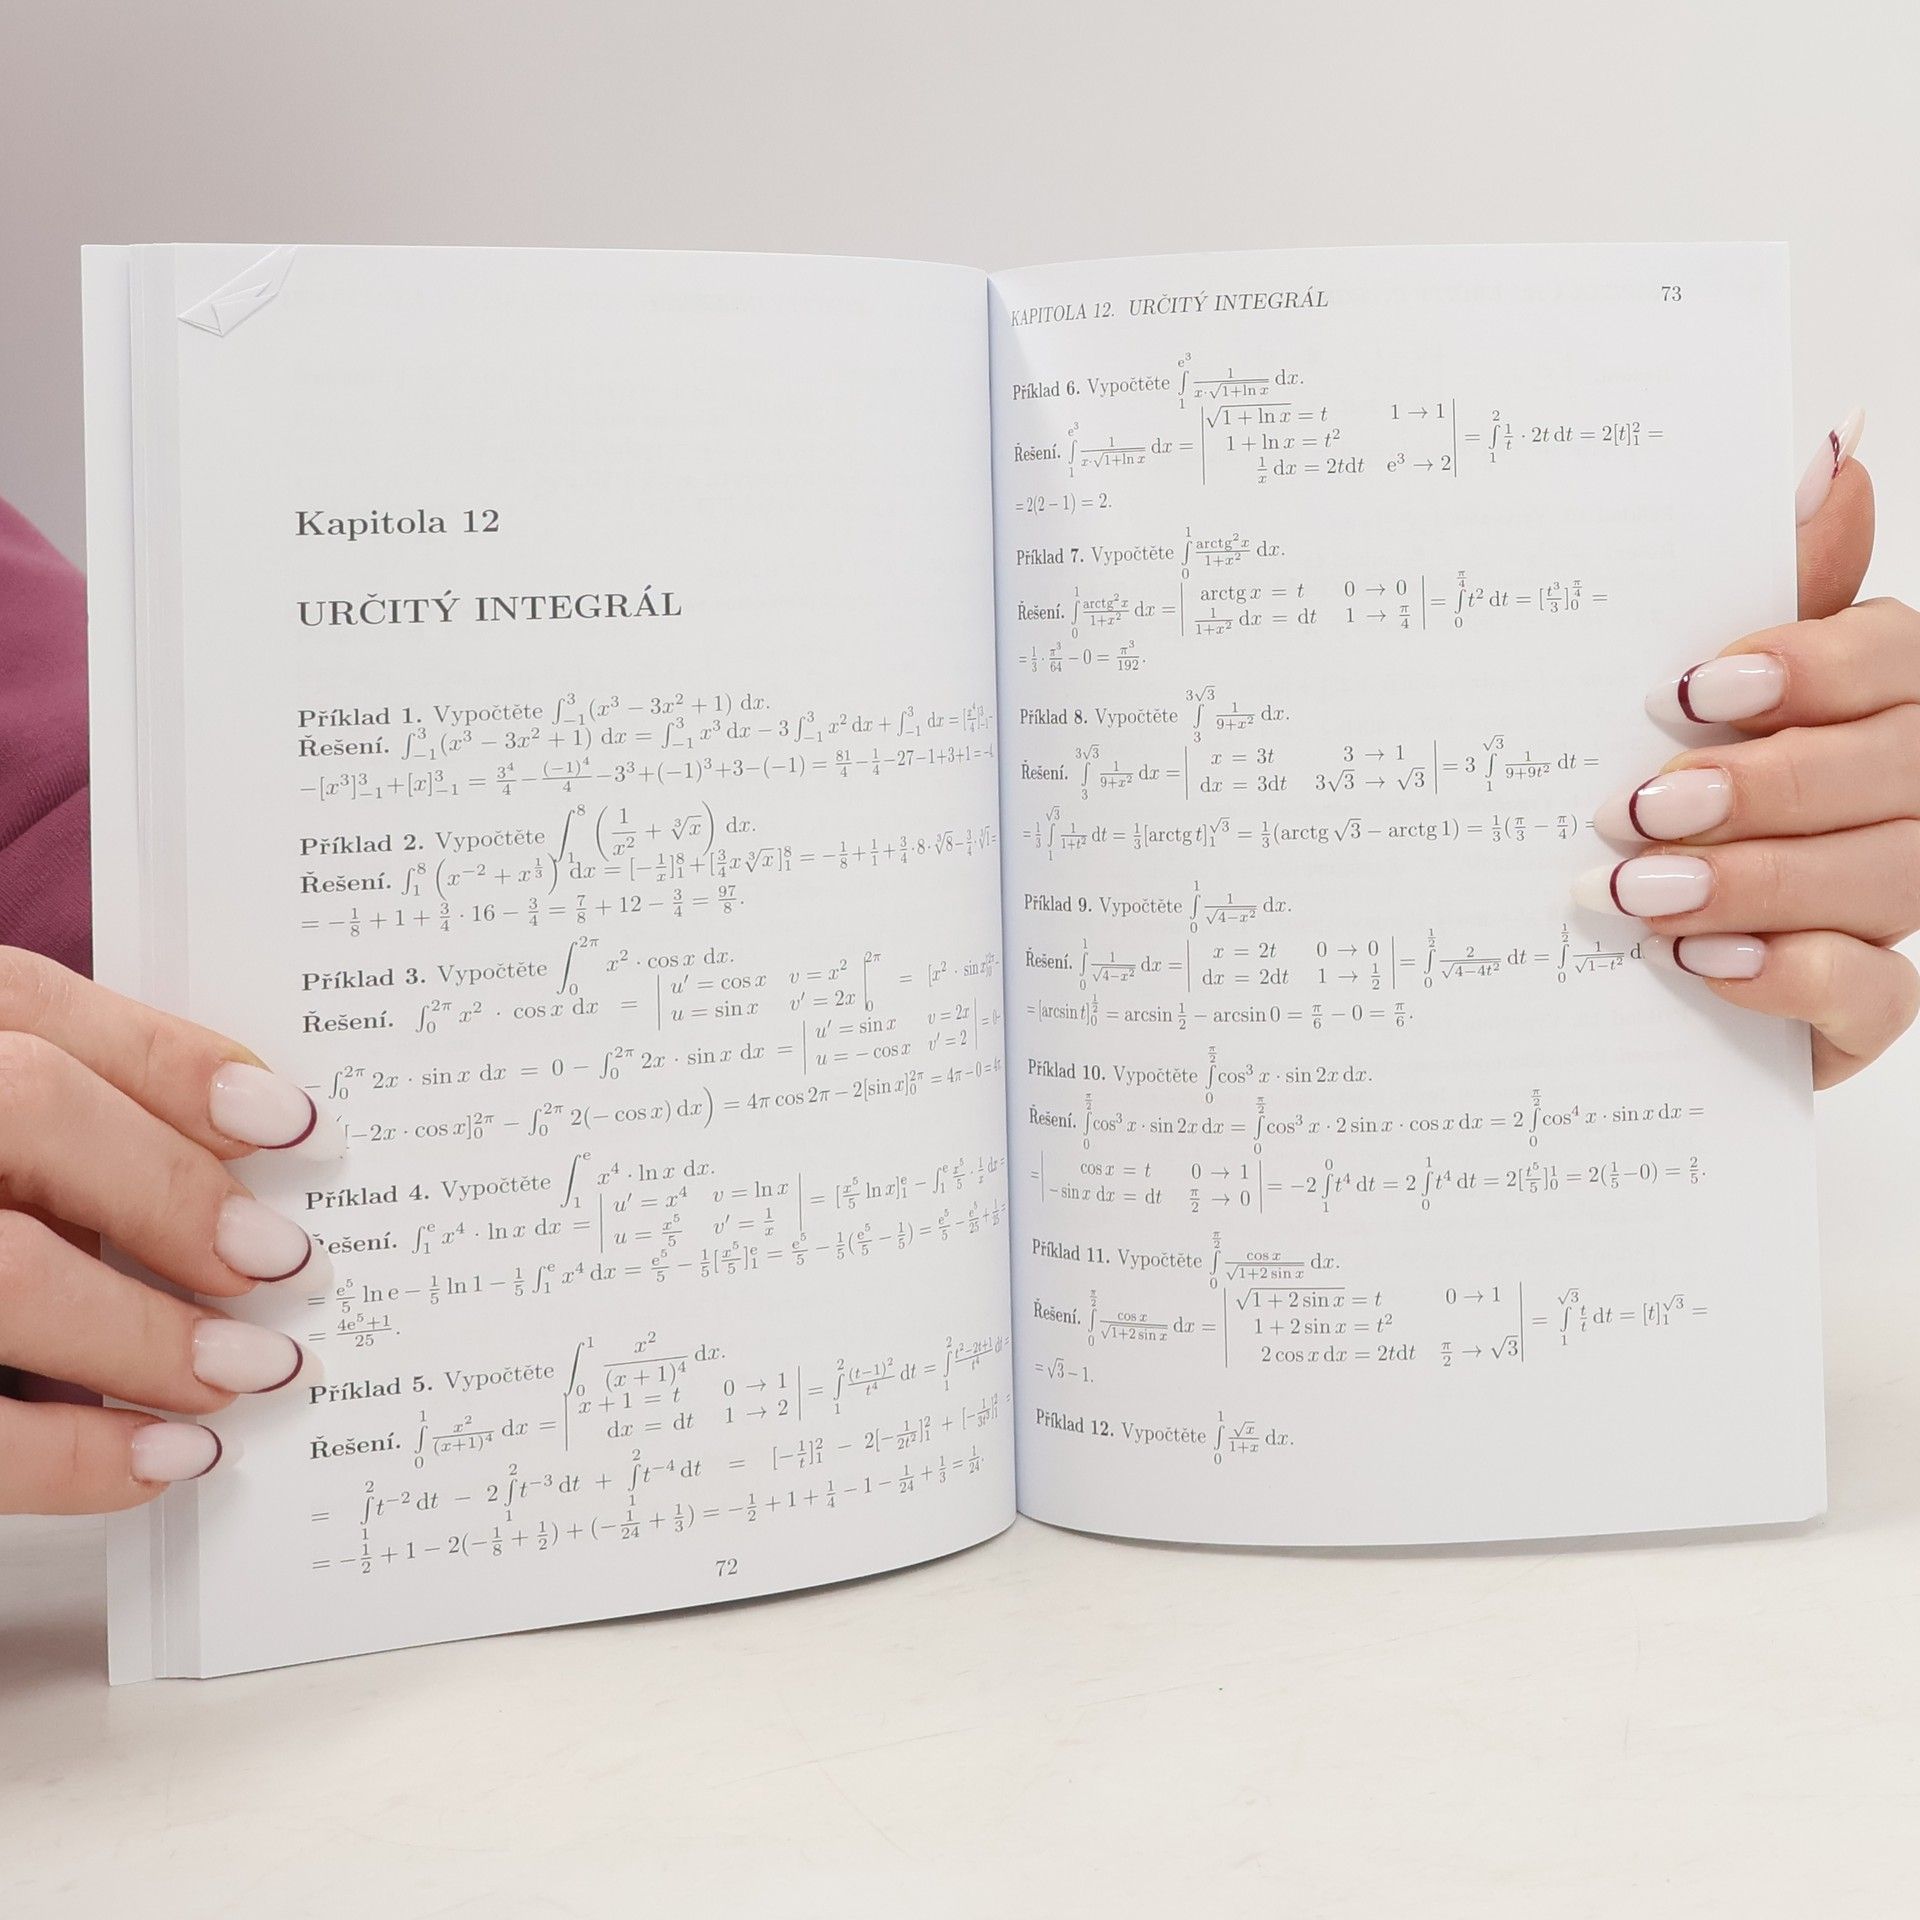 Kapitola 12
URČITÝ INTEGRÁL
Příklad 1. Vypočtěte ∫₋₁³ (x³ − 3x² + 1) dx.
Řešení. ∫₋₁³ (x³ − 3x² + 1) dx = ∫₋₁³ x³ dx − 3 ∫₋₁³ x² dx + ∫₋₁³ dx = [x⁴/4]₋₁³ −
−[x³]₋₁³ + [x]₋₁³ = 3⁴/4 − (−1)⁴/4 − 3³ + (−1)³ + 3 − (−1) = 81/4 − 1/4 − 27 − 1 + 3 + 1 =
Příklad 2. Vypočtěte ∫₁⁸ (1/x² + ∛x) dx.
Řešení. ∫₁⁸ (x⁻² + x^(1/3)) dx = [−1/x]₁⁸ + [3/4 x∛x]₁⁸ = −1/8 + 1/1 + 3/4 · 8 · ∛8 − 3/4 · ∛1 =
= −1/8 + 1 + 3/4 · 16 − 3/4 = 7/8 + 12 − 3/4 = 97/8.
Příklad 3. Vypočtěte ∫₀^(2π) x² · cos x dx.
Řešení. ∫₀^(2π) x² · cos x dx = | u′ = cos x v = x² ; u = sin x v′ = 2x |₀^(2π) = [x² · sin x]₀^(2π) −
− ∫₀^(2π) 2x · sin x dx = 0 − ∫₀^(2π) 2x · sin x dx = | u′ = sin x v = 2x ; u = − cos x v′ = 2 | = 0 −
[−2x · cos x]₀^(2π) − ∫₀^(2π) 2(− cos x) dx) = 4π cos 2π − 2[sin x]₀^(2π) = 4π − 0 = 4π
Příklad 4. Vypočtěte ∫₁^e x⁴ · ln x dx.
Řešení. ∫₁^e x⁴ · ln x dx = | u′ = x⁴ v = ln x ; u = x⁵/5 v′ = 1/x | = [x⁵/5 ln x]₁^e − ∫₁^e x⁵/5 · 1/x dx =
= e⁵/5 ln e − 1/5 ln 1 − 1/5 ∫₁^e x⁴ dx = e⁵/5 − 1/5 [x⁵/5]₁^e = e⁵/5 − 1/5 (e⁵/5 − 1/5) = e⁵/5 − e⁵/25 + 1/25 =
= (4e⁵+1)/25.
Příklad 5. Vypočtěte ∫₀¹ x²/(x + 1)⁴ dx.
Řešení. ∫₀¹ x²/(x+1)⁴ dx = | x + 1 = t 0 → 1 ; dx = dt 1 → 2 | = ∫₁² (t−1)²/t⁴ dt = ∫₁² (t²−2t+1)/t⁴ dt =
= ∫₁² t⁻² dt − 2 ∫₁² t⁻³ dt + ∫₁² t⁻⁴ dt = [−1/t]₁² − 2[−1/2t²]₁² + [−1/3t³]₁² =
= −1/2 + 1 − 2(−1/8 + 1/2) + (−1/24 + 1/3) = −1/2 + 1 + 1/4 − 1 − 1/24 + 1/3 = 1/24.
72
KAPITOLA 12. URČITÝ INTEGRÁL 73
Příklad 6. Vypočtěte ∫₁^(e³) 1/(x·√(1+ln x)) dx.
Řešení. ∫₁^(e³) 1/(x·√(1+ln x)) dx = | √(1 + ln x) = t 1 → 1 ; 1 + ln x = t² ; 1/x dx = 2tdt e³ → 2 | = ∫₁² 1/t · 2t dt = 2[t]₁² =
= 2(2 − 1) = 2.
Příklad 7. Vypočtěte ∫₀¹ arctg²x/(1+x²) dx.
Řešení. ∫₀¹ arctg²x/(1+x²) dx = | arctg x = t 0 → 0 ; 1/(1+x²) dx = dt 1 → π/4 | = ∫₀^(π/4) t² dt = [t³/3]₀^(π/4) =
= 1/3 · π³/64 − 0 = π³/192.
Příklad 8. Vypočtěte ∫₃^(3√3) 1/(9+x²) dx.
Řešení. ∫₃^(3√3) 1/(9+x²) dx = | x = 3t 3 → 1 ; dx = 3dt 3√3 → √3 | = 3 ∫₁^(√3) 1/(9+9t²) dt =
= 1/3 ∫₁^(√3) 1/(1+t²) dt = 1/3 [arctg t]₁^(√3) = 1/3 (arctg √3 − arctg 1) = 1/3 (π/3 − π/4) =
Příklad 9. Vypočtěte ∫₀¹ 1/√(4−x²) dx.
Řešení. ∫₀¹ 1/√(4−x²) dx = | x = 2t 0 → 0 ; dx = 2dt 1 → 1/2 | = ∫₀^(1/2) 2/√(4−4t²) dt = ∫₀^(1/2) 1/√(1−t²) d
= [arcsin t]₀^(1/2) = arcsin 1/2 − arcsin 0 = π/6 − 0 = π/6.
Příklad 10. Vypočtěte ∫₀^(π/2) cos³ x · sin 2x dx.
Řešení. ∫₀^(π/2) cos³ x · sin 2x dx = ∫₀^(π/2) cos³ x · 2 sin x · cos x dx = 2 ∫₀^(π/2) cos⁴ x · sin x dx =
= | cos x = t 0 → 1 ; − sin x dx = dt π/2 → 0 | = −2 ∫₁⁰ t⁴ dt = 2 ∫₀¹ t⁴ dt = 2[t⁵/5]₀¹ = 2(1/5 − 0) = 2/5.
Příklad 11. Vypočtěte ∫₀^(π/2) cos x/√(1+2 sin x) dx.
Řešení. ∫₀^(π/2) cos x/√(1+2 sin x) dx = | √(1 + 2 sin x) = t 0 → 1 ; 1 + 2 sin x = t² ; 2 cos x dx = 2tdt π/2 → √3 | = ∫₁^(√3) t/t dt = [t]₁^(√3) =
= √3 − 1.
Příklad 12. Vypočtěte ∫₀¹ √x/(1+x) dx.